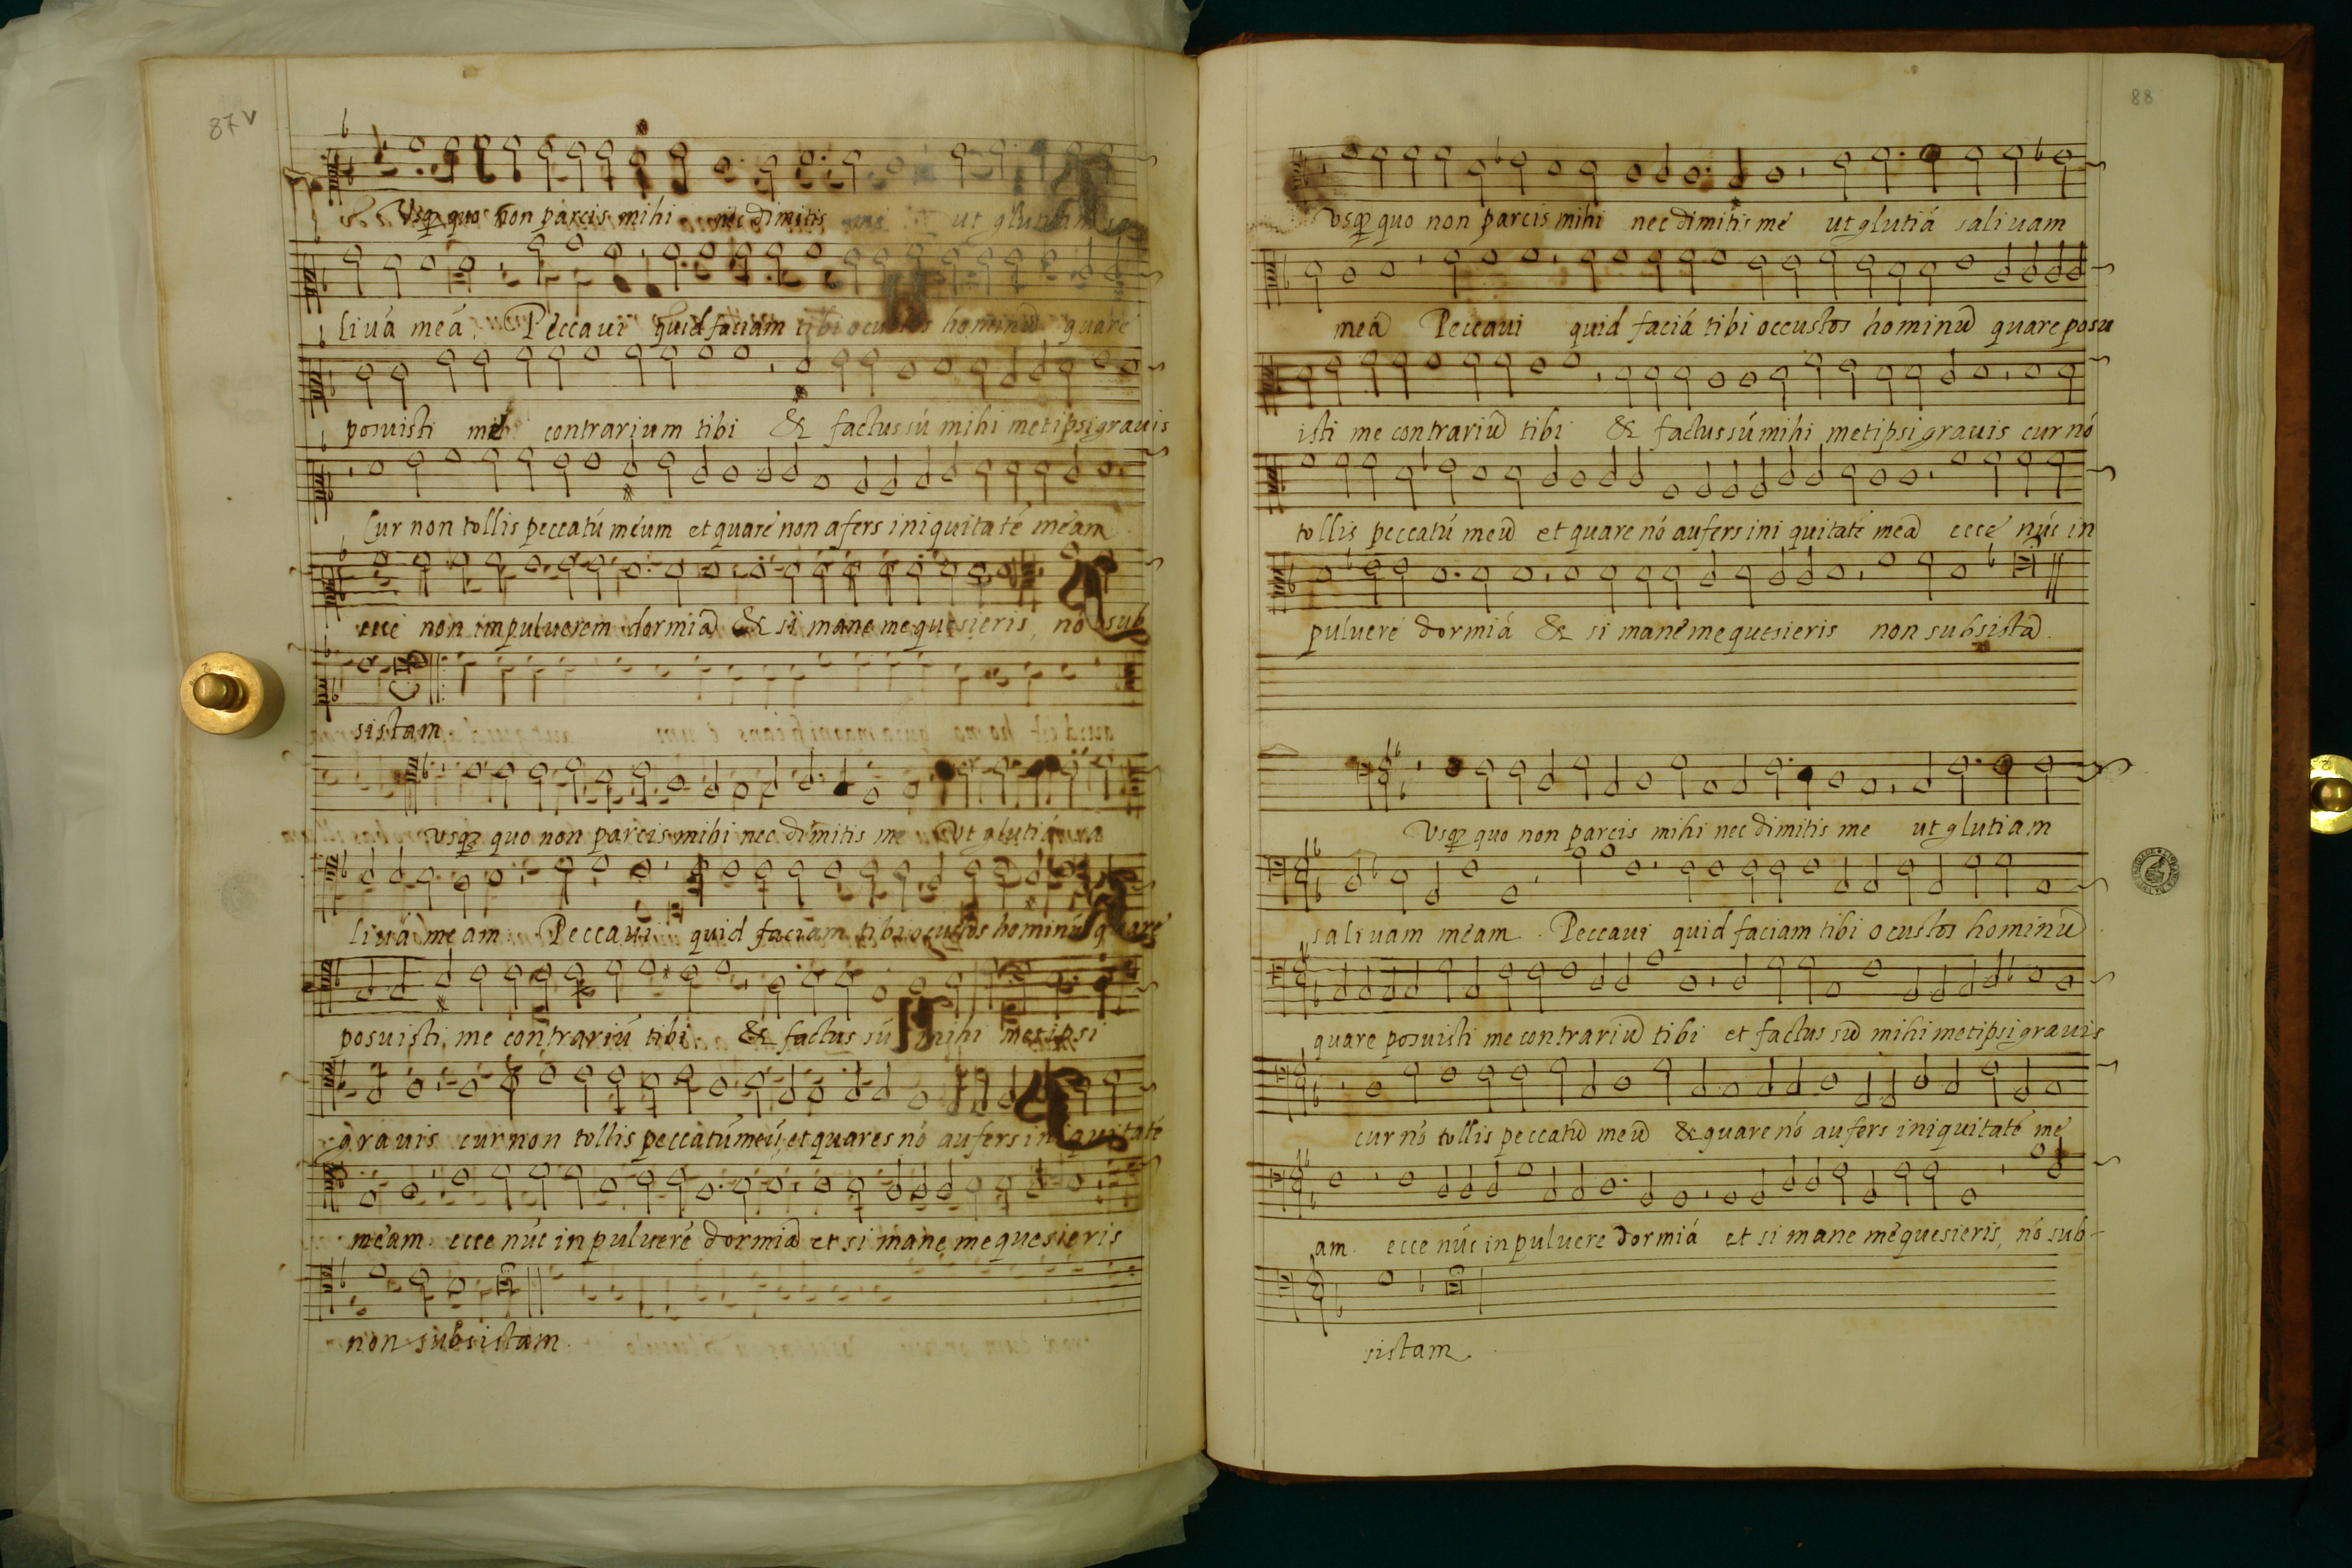 87v
Vsq quo non parcis mihi nec dimitis me ut glutiam sa
liuá meá Peccaui quid faciam tibi o custos hominũ quare
posuisti me contrarium tibi & factus sú mihi metipsi grauis
Cur non tollis peccatú meum et quare non afers iniquitaté meam
ecce non in puluerem dormiã & si mane me quesieris, nó sub
sistam
vsq quo non parcis mihi nec dimitis me Vt glutiá sa
liuá meam Peccaui quid faciam tibi o custos hominú quare
posuisti me contrariú tibi & factus sú mihi metipsi
grauis cur non tollis peccatú meú, et quares nó aufers iniquitaté
meam ecce núc in pulueré dormiã et si mane me quesieris
non subsistam
88
vsq quo non parcis mihi nec dimitis me ut glutiá saliuam
meã Peccaui quid faciá tibi o ccustos hominũ quare posu
isti me contrariũ tibi & factus sú mihi metipsi grauis cur nó
tollis peccatú meũ et quare nó aufers ini quitaté meã ecce núc in
pulueré dormiá & si mane me quesieris non subsistã
Vsq quo non parcis mihi nec dimitis me ut glutiam
saliuam meam. Peccaui quid faciam tibi o custos hominũ
quare posuisti me contrariũ tibi et factus sũ mihi metipsi grauis
cur nó tollis peccatũ meũ & quare nó aufers iniquitaté me
am. ecce núc in puluere dormiá et si mane me quesieris, nó sub-
sistam